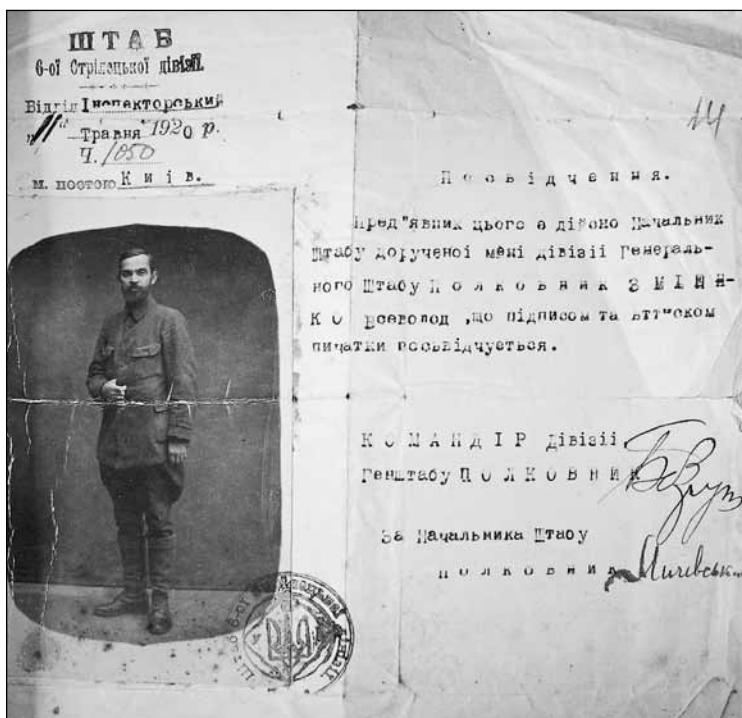 ШТАБ
6-ої Стрілецької дівізії.
Відділ Інспекторський
"11" Травня 1920 р.
Ч. 1050
м. постою Київ.
14
Посвідчення.
Пред"явник цього є дійсно Начальник
Штабу дорученої мені дівізії Генераль-
ного Штабу Полковник ЗМІЄН-
КО Всеволод ,що підписом та
пичатки посьвідчується.
КОМАНДІР дівізії,
Генштабу ПОЛКОВНИК
За Начальника Штабу
полковник
Штаб 6-ої дівізії